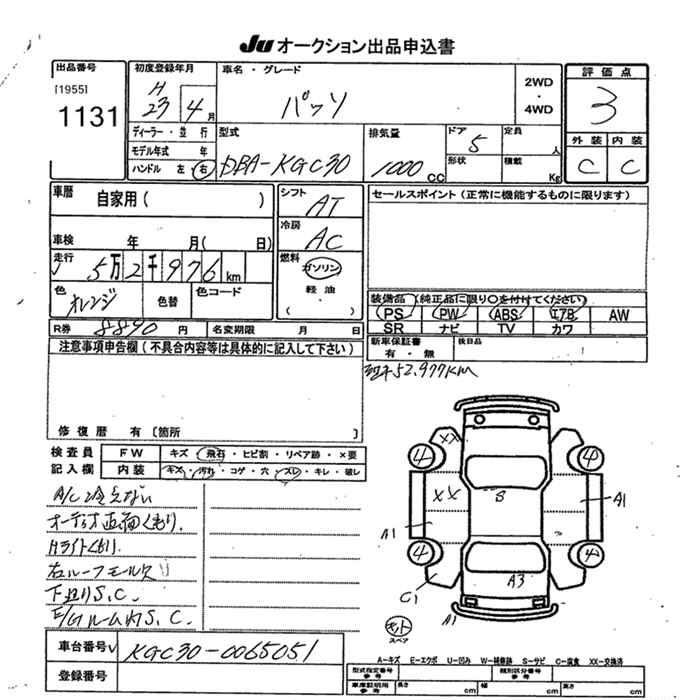 Ju オークション出品申込書
出品番号
[1955]
1131
初度登録年月
H
23 4月
車名・グレード
パッソ
2WD
・
4WD
評価点
3
外装 内装
C C
ディーラー・並行
モデル年式 年
ハンドル 左 右
型式
DBA-KGC30
排気量
1000 CC
ドア
5
形状
定員
人
積載
Kg
車歴
自家用( )
車検 年 月( 日)
走行
5万2千976km
シフト
AT
冷房
AC
燃料
ガソリン
軽油
( )
セールスポイント(正常に機能するものに限ります)
色
オレンジ
色替
色コード
装備品(純正品に限り○を付けてください)
PS PW ABS エアB AW
SR ナビ TV カワ
R券 8890 円
名変期限 月 日
新車保証書
有・無
後日品
注意事項申告欄(不具合内容等は具体的に記入して下さい)
52,977KM
修復歴 有〔箇所
検査員
記入欄
FW キズ・飛石・ヒビ割・リペア跡・×要
内装 キズ・汚れ・コゲ・穴・スレ・キレ・破レ
A/C冷えない
オーディオ画面くもり.
Hライトくもり.
右ルーフモール
下廻りS.C.
E/Gルーム内S.C.
XX
4 4
XX
S
A1
A1
4 4
C1
A3
A1
スペア
車台番号 KGC30-0065051
登録番号
A-キズ E-エクボ U-凹み W-補修跡 S-サビ C-腐食 XX-交換済
型式指定番号
参考
類別区分番号
参考
車庫証明用
参考
長さ
cm
幅
cm
高さ
cm